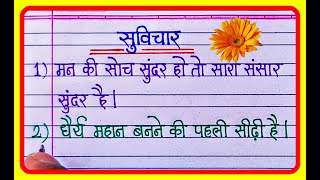 सुविचार
1) मन की सोच सुंदर हो तो सारा संसार
सुंदर है।
2) धैर्य महान बनने की पहली सीढ़ी है।